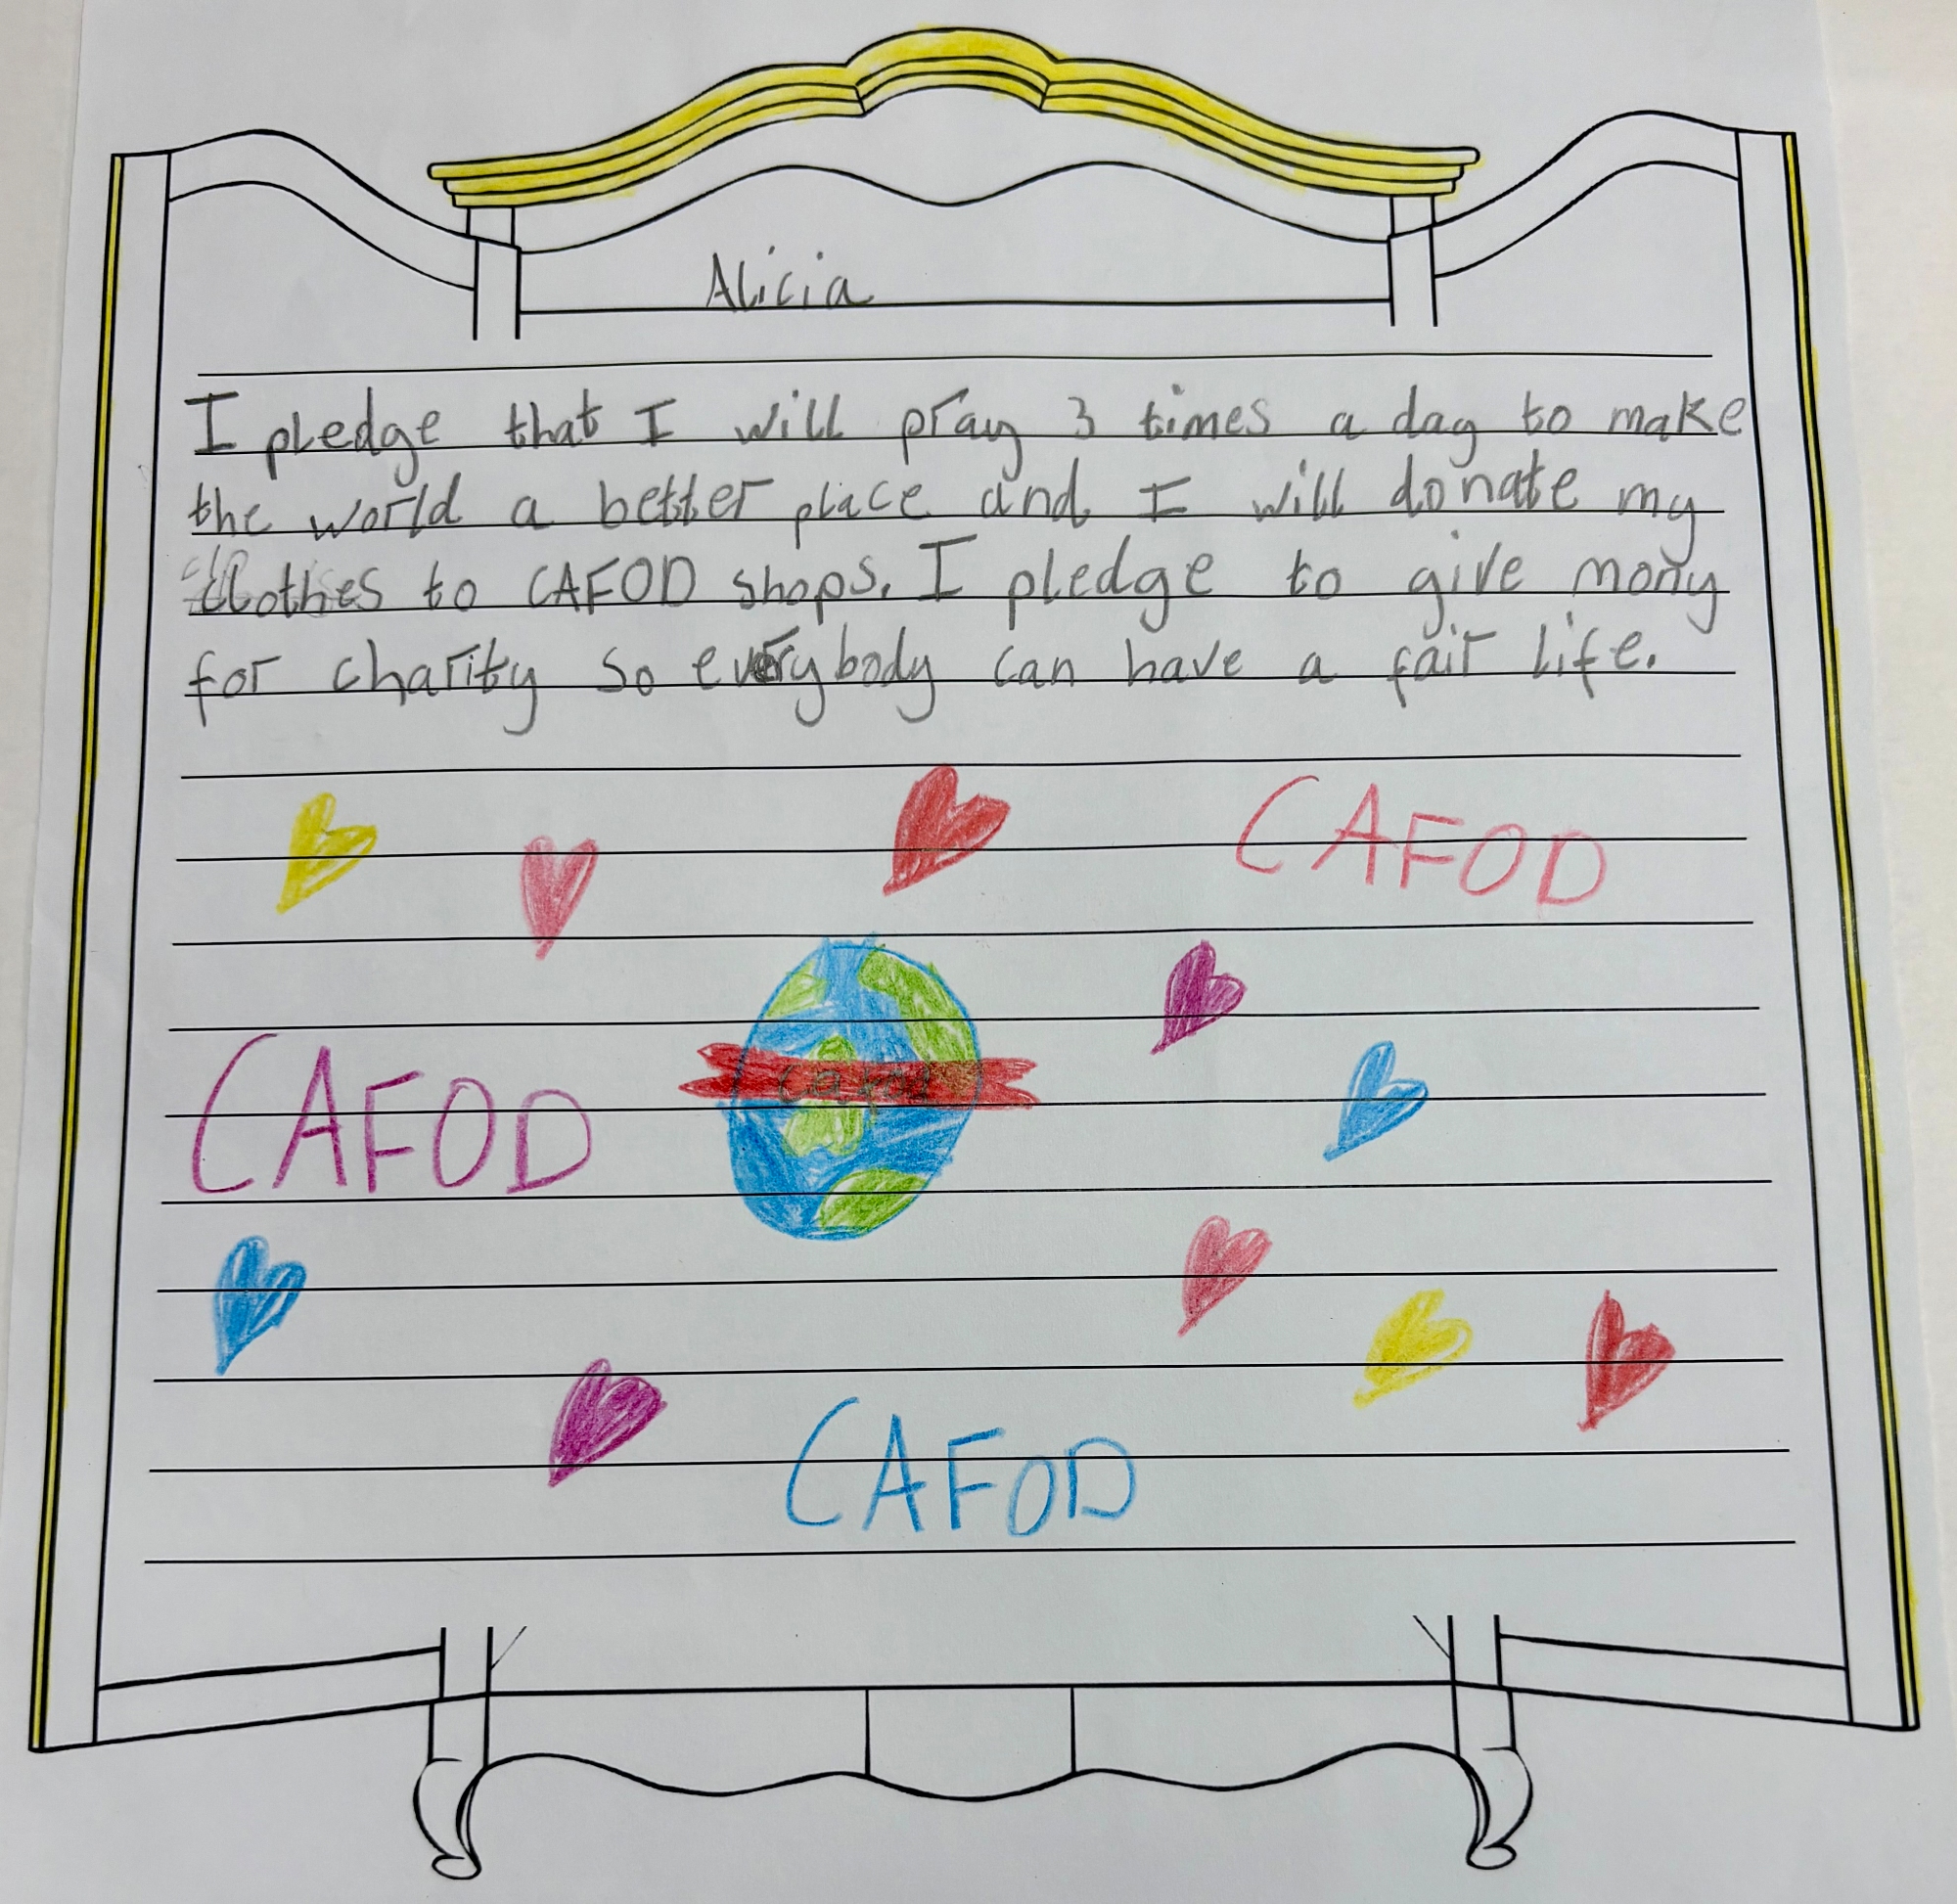 Alicia
I pledge that I will pray 3 times a day to make
the world a better place and I will donate my
clothes to CAFOD shops. I pledge to give mony
for charity so everybody can have a fair life.
CAFOD
CAFOD
cafod
CAFOD